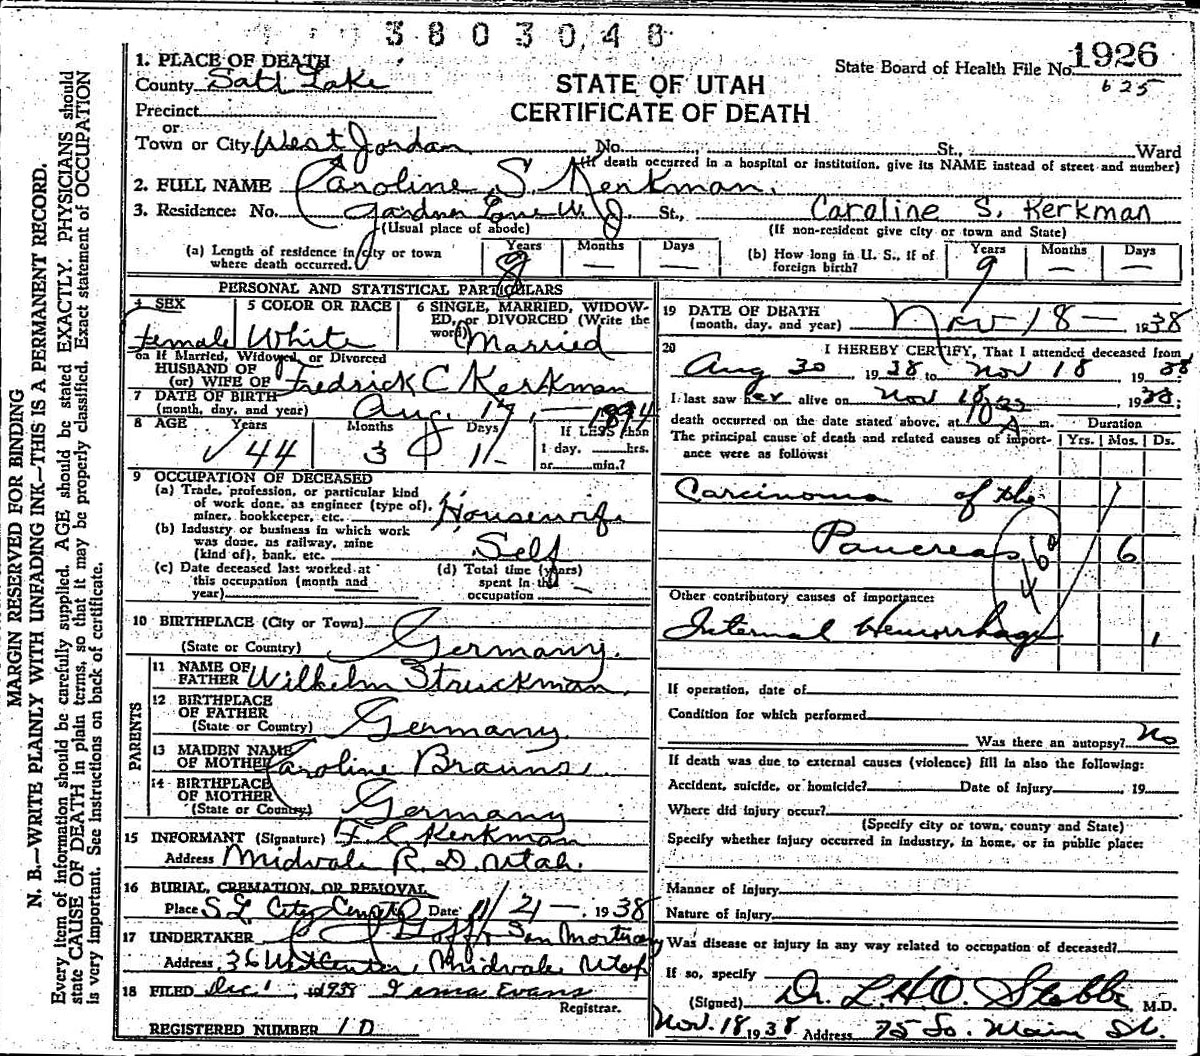 3803048
1926
625
1. PLACE OF DEATH
County Salt Lake
State Board of Health File No.
STATE OF UTAH
CERTIFICATE OF DEATH
Precinct
or
Town or City West Jordan No. St., Ward
(If death occurred in a hospital or institution, give its NAME instead of street and number)
2. FULL NAME Caroline S. Kerkman.
3. Residence: No. Gardner Lane W. J. St., Caroline S. Kerkman
(Usual place of abode) (If non-resident give city or town and State)
(a) Length of residence in city or town where death occurred. Years 8 Months — Days —
(b) How long in U. S., if of foreign birth? Years 9 Months — Days —
PERSONAL AND STATISTICAL PARTICULARS
4 SEX Female
5 COLOR OR RACE White
6 SINGLE, MARRIED, WIDOWED, or DIVORCED (Write the word) Married
If Married, Widowed, or Divorced
HUSBAND OF
(or) WIFE OF Fredrick C Kerkman
7 DATE OF BIRTH
(month, day, and year) Aug. 17, — 1894
8 AGE Years 44 Months 3 Days 1 If LESS than 1 day, hrs. or min.?
9 OCCUPATION OF DECEASED
(a) Trade, profession, or particular kind of work done, as engineer (type of), miner, bookkeeper, etc. Housewife
(b) Industry or business in which work was done, as railway, mine (kind of), bank, etc. Self
(c) Date deceased last worked at this occupation (month and year)
(d) Total time (years) spent in this occupation —
10 BIRTHPLACE (City or Town)
(State or Country) Germany.
PARENTS
11 NAME OF FATHER Wilhelm Struckman.
12 BIRTHPLACE OF FATHER
(State or Country) Germany.
13 MAIDEN NAME OF MOTHER Caroline Brauns.
14 BIRTHPLACE OF MOTHER
(State or Country) Germany
15 INFORMANT (Signature) F. C. Kerkman
Address Midvale R. D. Utah.
16 BURIAL, CREMATION, OR REMOVAL
Place S L City Cemetery Date 11/21 — 1938
17 UNDERTAKER Goff & Son Mortuary
Address 36 West Center, Midvale Utah
18 FILED Dec 1, 1938 Erma Evans
Registrar.
REGISTERED NUMBER 10
19 DATE OF DEATH
(month, day, and year) Nov 18 — 1938
20 I HEREBY CERTIFY, That I attended deceased from
Aug 30 1938 to Nov 18 1938
I last saw her alive on Nov 18 1938;
death occurred on the date stated above, at A m.
The principal cause of death and related causes of importance were as follows:
Duration
Yrs. Mos. Ds.
Carcinoma of the
Pancreas 6
46
Other contributory causes of importance:
Internal Hemorrhage 1
If operation, date of
Condition for which performed
Was there an autopsy? No
If death was due to external causes (violence) fill in also the following:
Accident, suicide, or homicide? Date of injury 19
Where did injury occur?
(Specify city or town, county and State)
Specify whether injury occurred in industry, in home, or in public place:
Manner of Injury
Nature of Injury
Was disease or injury in any way related to occupation of deceased?
If so, specify
(Signed) Dr. L. H. O. Stobbe M.D.
Nov. 18 1938 Address 75 So. Main St.
MARGIN RESERVED FOR BINDING
N. B.—WRITE PLAINLY WITH UNFADING INK—THIS IS A PERMANENT RECORD.
Every item of information should be carefully supplied. AGE should be stated EXACTLY. PHYSICIANS should
state CAUSE OF DEATH in plain terms, so that it may be properly classified. Exact statement of OCCUPATION
is very important. See instructions on back of certificate.